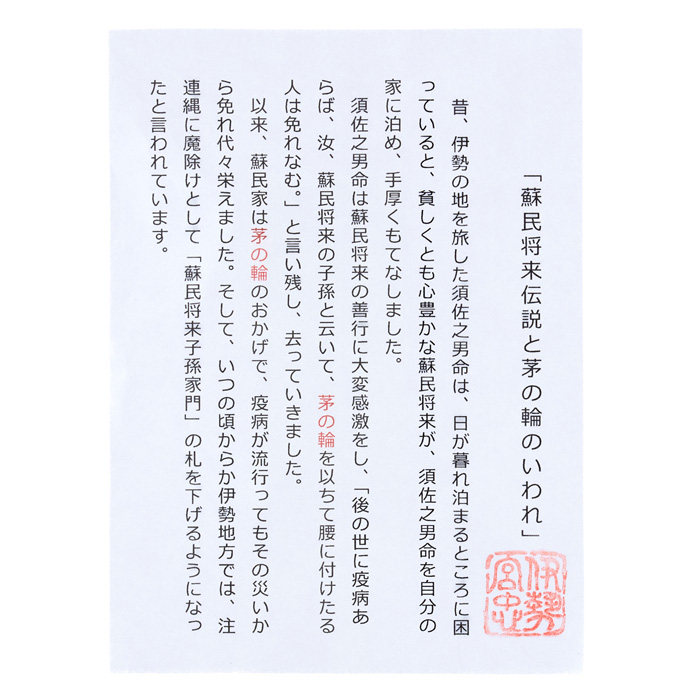 「蘇民将来伝説と茅の輪のいわれ」
昔、伊勢の地を旅した須佐之男命は、日が暮れ泊まるところに困
っていると、貧しくとも心豊かな蘇民将来が、須佐之男命を自分の
家に泊め、手厚くもてなしました。
須佐之男命は蘇民将来の善行に大変感激をし、「後の世に疫病あ
らば、汝、蘇民将来の子孫と云いて、茅の輪を以ちて腰に付けたる
人は免れなむ。」と言い残し、去っていきました。
以来、蘇民家は茅の輪のおかげで、疫病が流行ってもその災いか
ら免れ代々栄えました。そして、いつの頃からか伊勢地方では、注
連縄に魔除けとして「蘇民将来子孫家門」の札を下げるようになっ
たと言われています。
伊勢
宮忠